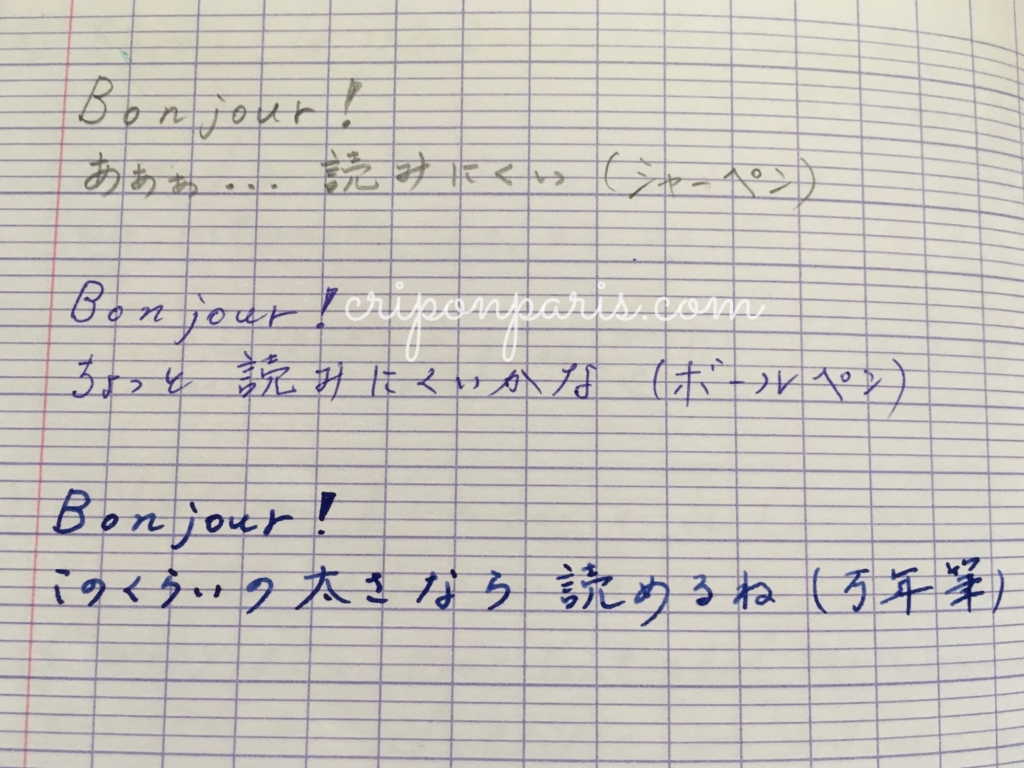 Bonjour!
あぁぁ... 読みにくい (シャーペン)
Bonjour!
criponparis.com
ちょっと 読みにくいかな (ボールペン)
Bonjour!
このくらいの太さなら 読めるね (万年筆)